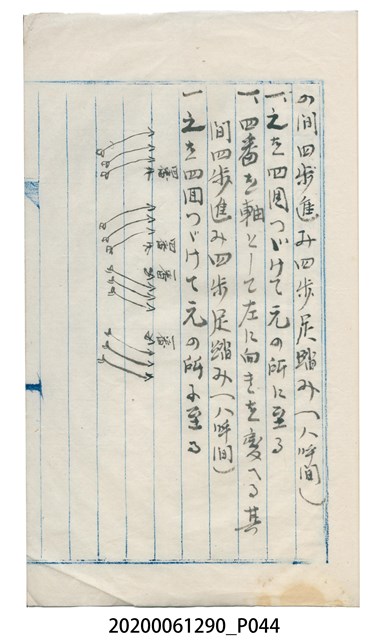 の間四歩進み四歩足踏み(八呼間)
一、之を四回つゞけて元の所に至る
一、四番を軸として左に向きを変へる其
間四歩進み四歩足踏み(八呼間)
一、之を四回つゞけて元の所に至る
四番
一番
20200061290_P044